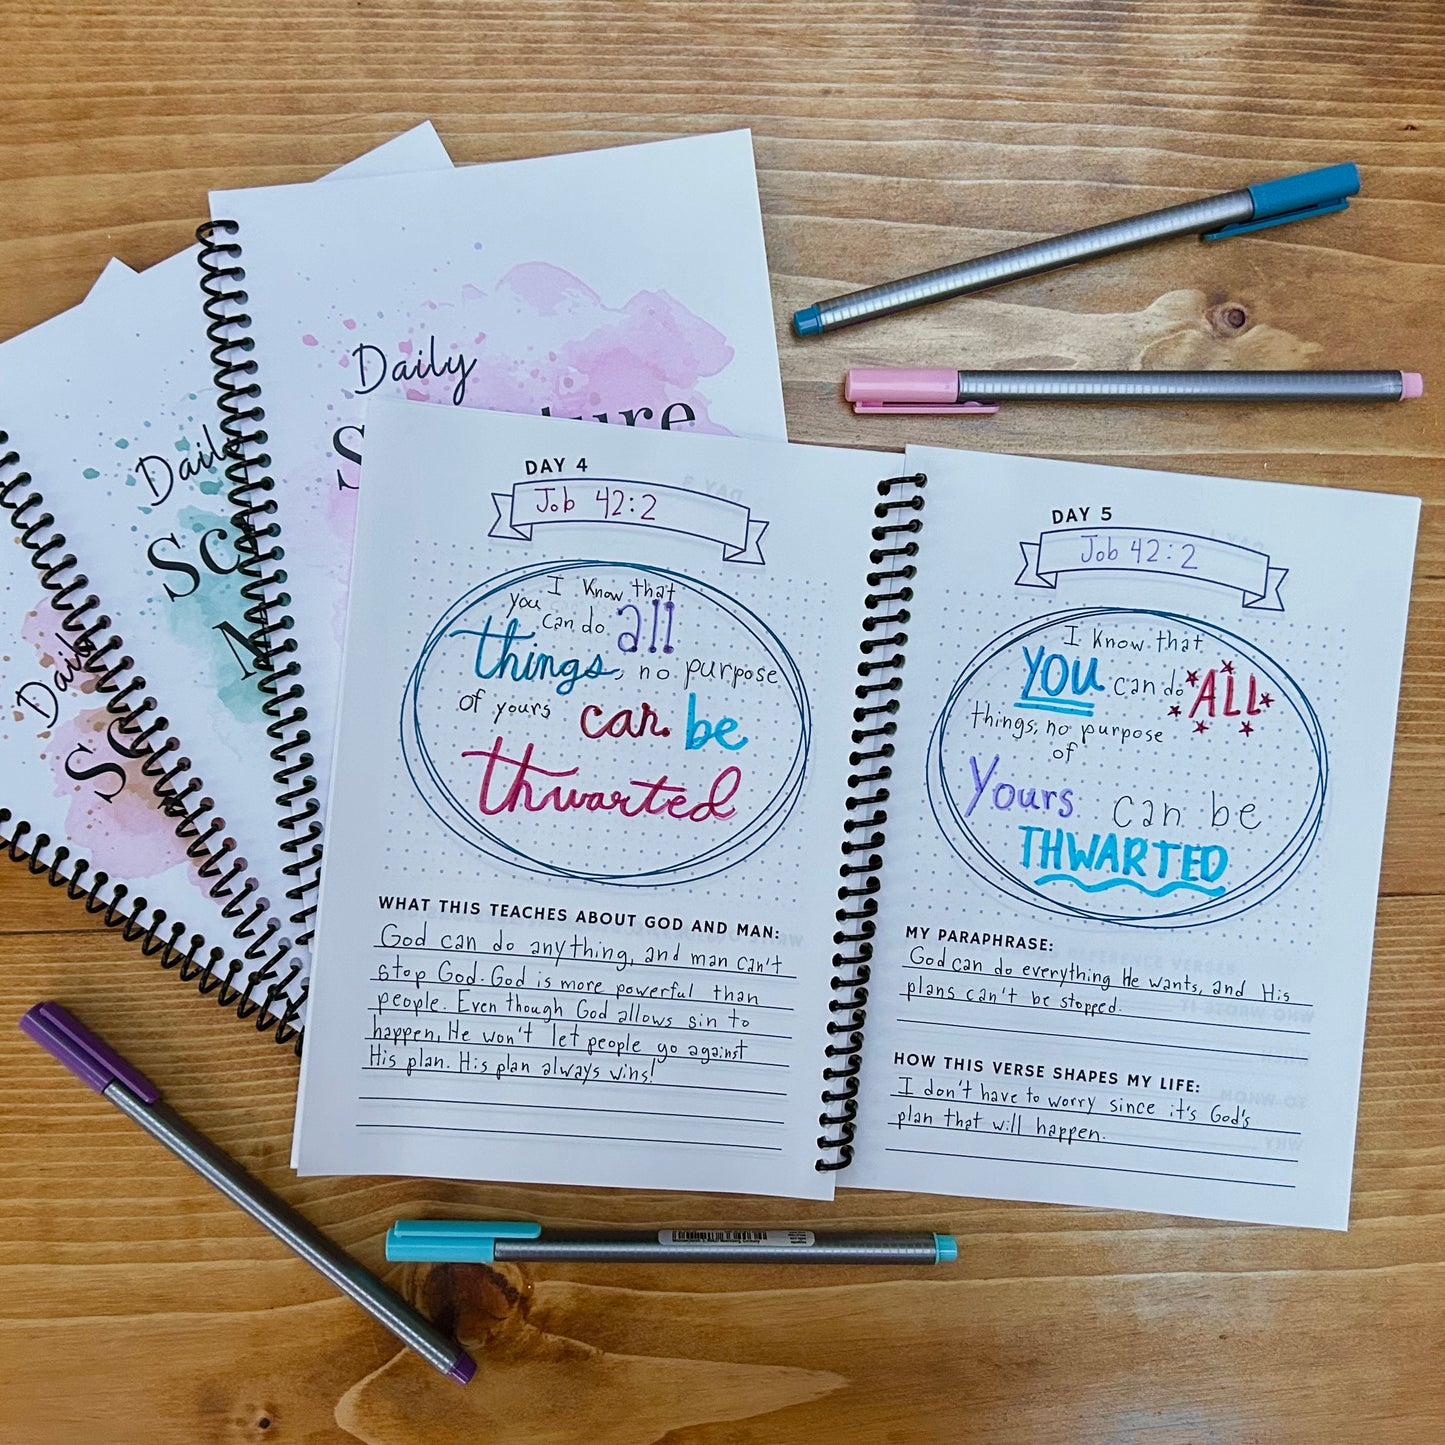 Daily
Daily
Daily
DAY 4
Job 42:2
I know that
you can do all
things, no purpose
of yours can be
thwarted
WHAT THIS TEACHES ABOUT GOD AND MAN:
God can do anything, and man can't
stop God. God is more powerful than
people. Even though God allows sin to
happen, He won't let people go against
His plan. His plan always wins!
DAY 5
Job 42:2
I know that
YOU can do ALL
things, no purpose
of
Yours can be
THWARTED
MY PARAPHRASE:
God can do everything He wants, and His
plans can't be stopped.
HOW THIS VERSE SHAPES MY LIFE:
I don't have to worry since it's God's
plan that will happen.